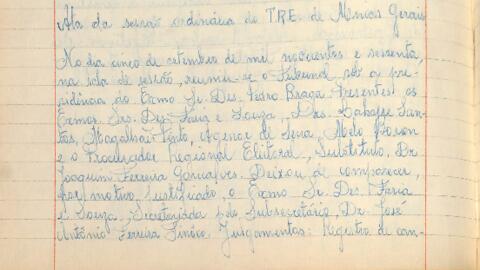 Ata da sessão ordinária do T.R.E. de Minas Gerais
No dia cinco de setembro de mil novecentos e sessenta,
na sala de sessão, reuniu-se o Tribunal, sob a pre-
sidência do Exmo. Sr. Des. Pedro Braga. Presentes os
Exmos. Srs. Des. Faria e Souza, Drs. San-
tos, Magalhães Pinto, de Sena, Melo
e o Procurador Regional Eleitoral, Substituto, Dr.
Joaquim Ferreira Gonçalves. Deixou de comparecer,
por motivo justificado, o Exmo. Sr. Des. Faria
e Souza. Secretariada pelo Subsecretário, Dr. José
Antônio Ferreira. Julgamentos: Registro de can-